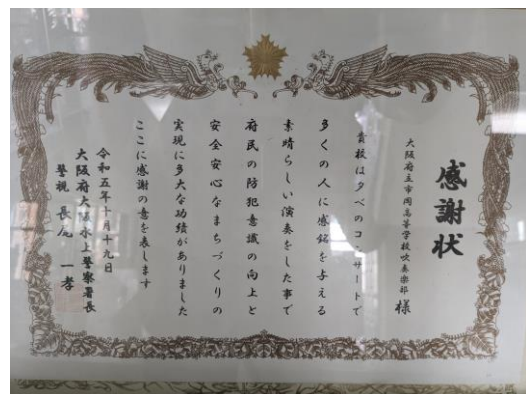 感謝状
大阪府立市岡高等学校吹奏楽部 様
貴校は夕べのコンサートで
多くの人に感銘を与える
素晴らしい演奏をした事で
府民の防犯意識の向上と
安全安心なまちづくりの
実現に多大な功績がありました
ここに感謝の意を表します
令和五年十月十九日
大阪府大阪水上警察署長
警視 長尾 一孝